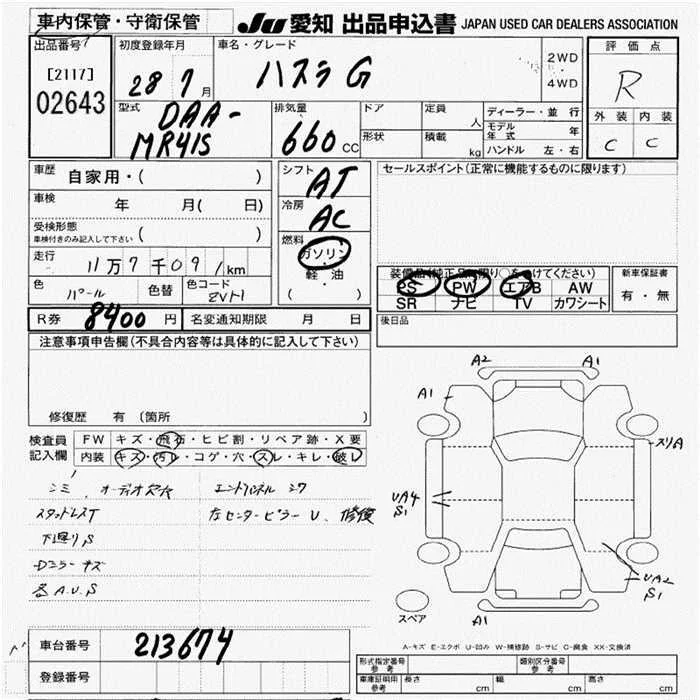 車内保管・守衛保管
JU 愛知 出品申込書 JAPAN USED CAR DEALERS ASSOCIATION
出品番号
[2117]
02643
初度登録年月
28 7 月
車名・グレード
ハスラ G
2WD
4WD
評価点
R
外装 内装
C C
型式
DAA-
MR41S
排気量
660 cc
ドア
形状
定員
人
積載
kg
ディーラー・並行
モデル年式 年
ハンドル 左・右
車歴 自家用・( )
車検 年 月( 日)
受検形態
車検付きのみ記入して下さい ( )
走行 11万7千091km
色 パール 色替 色コード ZVH
R券 8400 円 名変通知期限 月 日
シフト
AT
冷房
AC
燃料
ガソリン
軽・油
( )
セールスポイント(正常に機能するものに限ります)
装備品(純正品に限り○をつけてください)
PS PW エアB AW
SR ナビ TV カワシート
新車保証書
有・無
後日品
注意事項申告欄(不具合内容等は具体的に記入して下さい)
修復歴 有 (箇所 )
検査員記入欄
FW キズ・飛石・ヒビ割・リペア跡・X要
内装 キズ・汚レ・コゲ・穴・スレ・キレ・破レ
シミ、オーディオ欠
スタッドレスT
下廻りS
Dミラーキズ
各A.U.S
センターピラーU、修復
A2 A1
A1
スリA
UA4
S1
UA2
S1
A1
スペア
A-キズ E-エクボ U-凹み W-補修跡 S-サビ C-腐食 XX-交換済
車台番号 213674
登録番号
形式指定番号 参考
類別区分番号 参考
車庫証明用 参考 長さ cm 幅 cm 高さ cm